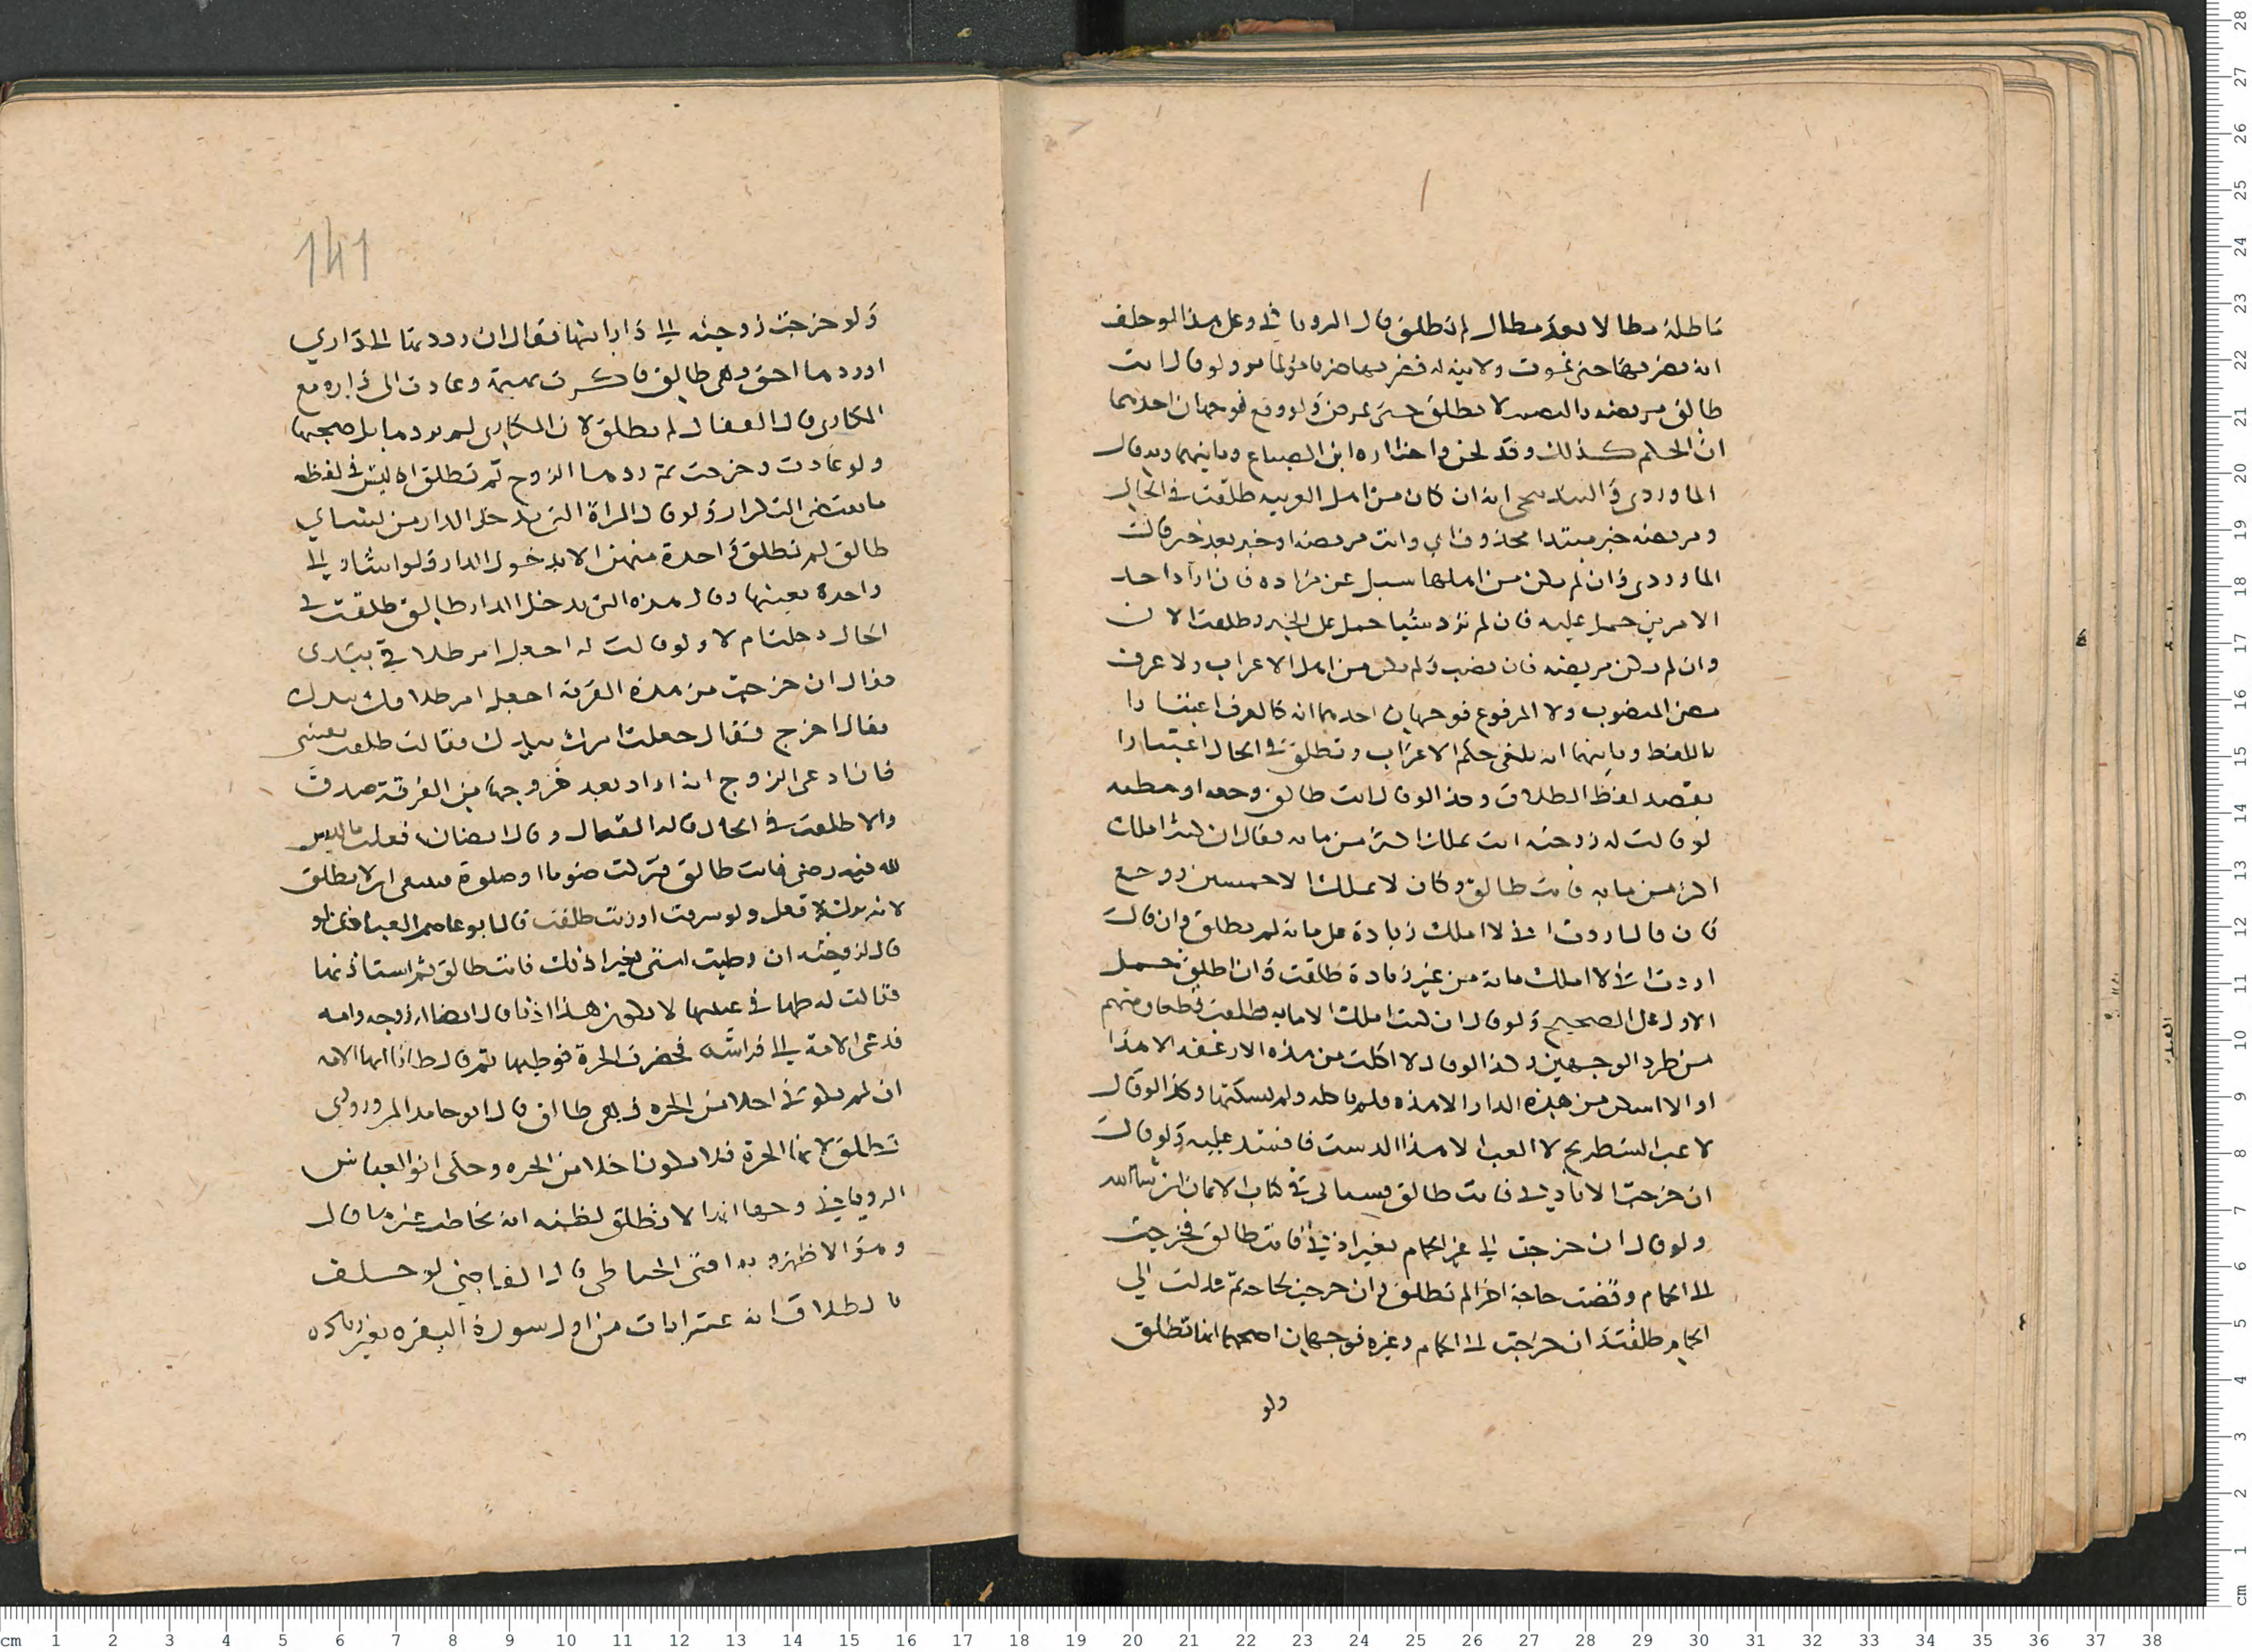 ماطله مطالا لا يعد مطال لم تطلق قال الروياني وعلى هذا لو حلف
انه يضربها حتى تموت ولا نية له فضربها ضربا مؤلما بر ولو قال انت
طالق مريضه بالنصب لا تطلق حتى تمرض ولو رفع فوجهان احدهما
ان الحكم كذلك وقد لحن واختاره ابن الصباغ وثانيهما وبه قال
الماوردي انه ان كان من اهل العربيه طلقت في الحال
ومريضه خبر مبتدا محذوف اي وانت مريضه او خبر بعد خبر قال
الماوردي وان لم يكن من اهلها سيل عن مراده فان اراد احد
الامرين حمل عليه فان لم يرد شيا حمل على الخبر وطلقت الان
وان لم تكن مريضه فان نصب ولم يكن من اهل الاعراب ولا عرف
معنى المنصوب ولا المرفوع فوجهان احدهما انه كالعرف اعتبارا
باللفظ وثانيهما انه يلغى حكم الاعراب وتطلق في الحال اعتبارا
بقصد لفظ الطلاق وكذا لو قال انت طالق
لو قالت له زوجته انت تملك اكثر من مايه فقال ان كنت املك
اكثر من مايه فانت طالق وكان لا يملك الا خمسين روجع
فان قال اردت اني لا املك زيادة على مايه لم تطلق وان قال
اردت اني لا املك مايه من غير زيادة طلقت وان اطلق حمل
الاول على الصحيح ولو قال ان كنت املك الا مايه طلقت قطعا ومنهم
من طرد الوجهين وكذا لو قال لا اكلت من هذه الارغفه الا هذا
او لا اسكن من هذه الدار الا هذه فلم ياكله ولم يسكنها وكذا لو قال
لاعب الشطرنج لا العب الا هذا الدست فافسد عليه ولو قال
ان خرجت الا باذني فانت طالق فسياتي في كتاب الايمان ان شا الله
ولو قال ان خرجت الى غير الحمام بغير اذني فانت طالق فخرجت
الى الحمام وقضت حاجة اخرا لم تطلق وان خرجت لحاجه ثم عدلت الي
الحمام طلقت وان خرجت الى الحمام وغيره فوجهان اصحهما انها تطلق
ولو
141
ولو خرجت زوجته الى دار ابيها فقال ان رددتها الى داري
او ردها احد وهي طالق فاكترت بهيمة وعادت الى داره مع
المكاري قال القفال لم تطلق لان المكاري لم يردها بل صحبها
ولو عادت وخرجت ثم ردها الزوج لم تطلق اذ ليس في لفظه
ما يقتضى التكرار ولو قال المراة التي تدخل الدار من نسائي
طالق لم تطلق واحدة منهن الا بدخول الدار ولو اشار الى
واحدة بعينها وقال هذه التي تدخل الدار طالق طلقت في
الحال دخلت ام لا ولو قالت له اجعل امر طلاقي بيدي
فقال ان خرجت من هذه القرية اجعل امر طلاقك بيدك
فقال اخرج فقال جعلت امرك بيدك فقالت طلقت نفسي
فان ادعى الزوج انه اراد بعد خروجها من القرية صدق
والا طلقت في الحال قاله القفال وقال ايضا ان فعلت ما ليس
لله فيه رضى فانت طالق فتركت صوما او صلوة ينبغي ان لا تطلق
لانه ترك لا فعل ولو سرقت او زنت طلقت قال ابو عاصم العبادي لو
قال لزوجته ان وطيت امتي بغير اذنك فانت طالق ثم استاذنها
فقالت له طاها في عينها لا يكون هذا اذنا قال ايضا له زوجه وامه
فدعى الامة الى فراشه فحضرت الحرة فوطيها ثم قال ظانا انها الامه
ان لم تكوني احلا من الحره فهي طالق قال ابو حامد المروروذي
تطلق لانها الحرة فلا تكون احلا من الحره وحكى ابو العباس
الروياني وجها انها لا تطلق لظنه انه يخاطب غيرها قال
وهو الاظهر وبه افتى الحناطي قال القاضي لو حلف
بالطلاق انه عشر ايات من اول سورة البقره بغير زياده